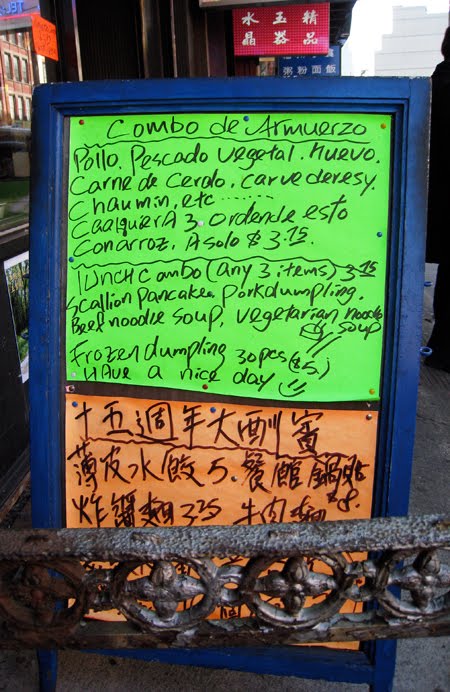 水玉精
晶器品
粥粉面飯
Combo de Armuerzo
Pollo. Pescado vegetal. Huevo.
Carne de Cerdo. carve deresy.
Chaumin, etc ........
CaalquierA 3 ordende esto
Conarroz. A solo $ 3.75.
lunch combo (any 3 items) 3.75
Scallion pancake. porkdumpling.
Beef noodle soup, vegetarian noodle
soup
Frozen dumpling 30pcs ($5.)
HAVe a nice day
十五週年大酬賓
薄皮水餃5. 餐館鍋貼
$8.
炸醬麵 3.75 牛肉麵